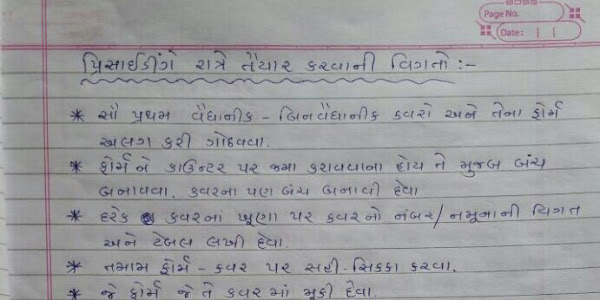 BOSS
Page No.
Date: | |
પ્રિસાઈડીંગે રાત્રે તૈયાર કરવાની વિગતો :-
* સૌ પ્રથમ વૈધાનીક - બિનવૈધાનીક કવરો અને તેના ફોર્મ
અલગ કરી ગોઠવવા.
* ફોર્મ ને કાઉન્ટર પર જમા કરાવવાના હોય તે મુજબ બંચ
બનાવવા. કવરના પણ બંચ બનાવી દેવા
* દરેક કવરનાં ખૂણા પર કવરનો નંબર / નમૂનાની વિગત
અને ટેબલ લખી દેવા.
* તમામ ફોર્મ - કવર પર સહી-સિક્કા કરવા.
* જે ફોર્મ જે તે કવર માં મૂકી દેવા